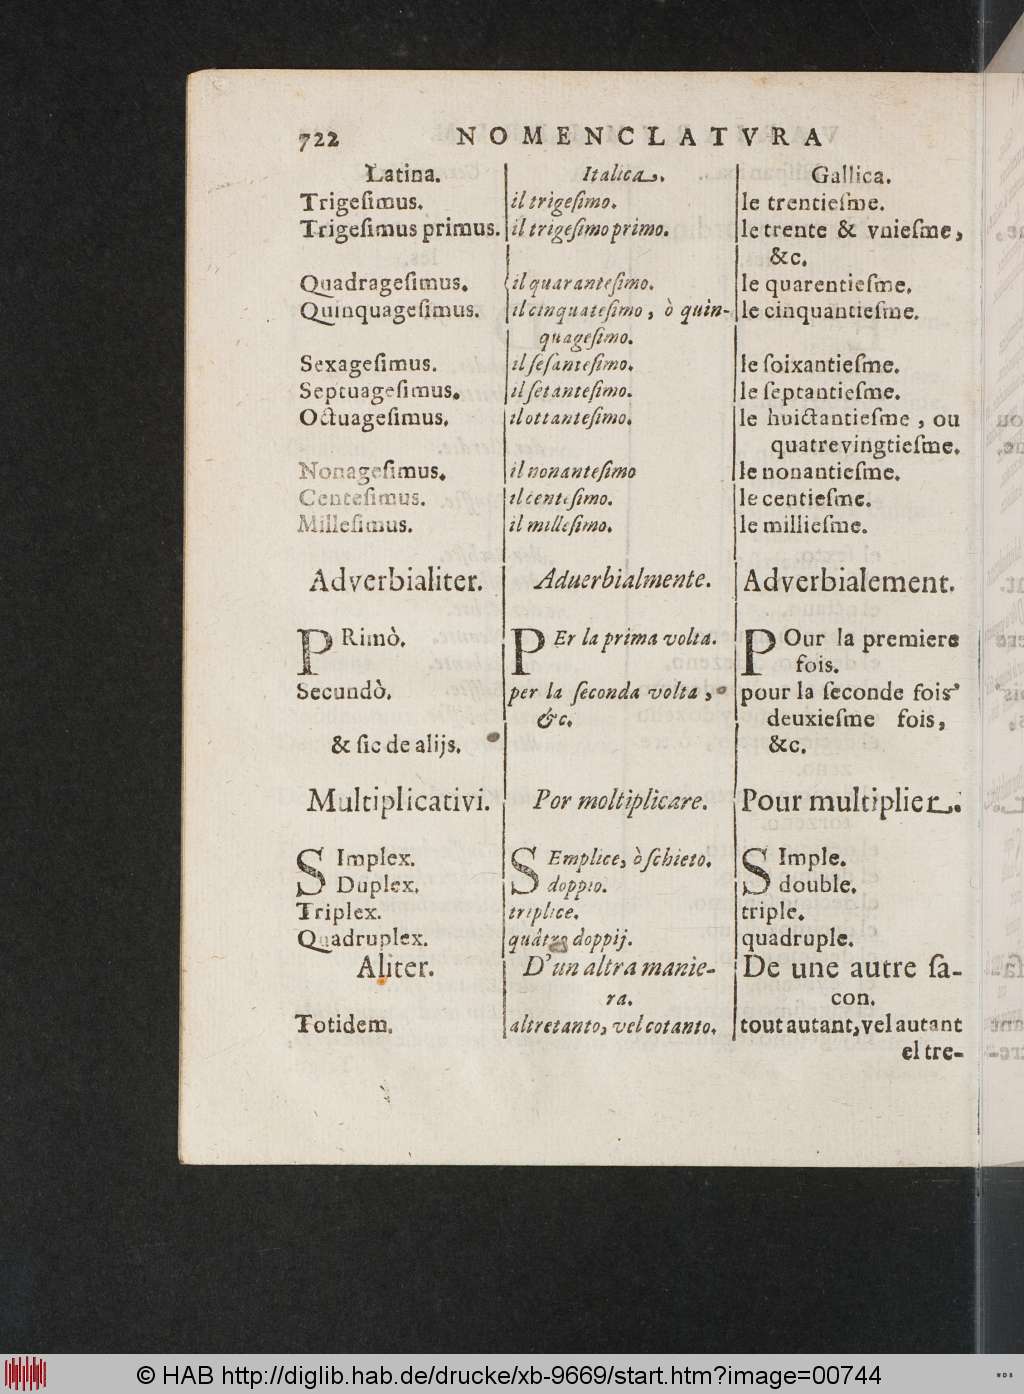 722 NOMENCLATVRA
Latina. Italica. Gallica.
Trigeſimus. il trigeſimo. le trentieſme.
Trigeſimus primus. il trigeſimo primo. le trente & vnieſme,
&c.
Quadrageſimus. il quaranteſimo. le quarentieſme.
Quinquageſimus. il cinquateſimo, ò quin- le cinquantieſme.
quageſimo.
Sexageſimus. il ſeſanteſimo. le ſoixantieſme.
Septuageſimus. il ſetanteſimo. le ſeptantieſme.
Octuageſimus. il ottanteſimo. le huictantieſme, ou
quatrevingtieſme.
Nonageſimus. il nonanteſimo le nonantieſme.
Centeſimus. il centeſimo. le centieſme.
Milleſimus. il milleſimo. le millieſme.
Adverbialiter. Aduerbialmente. Adverbialement.
PRimò. PEr la prima volta. POur la premiere
fois.
Secundò. per la ſeconda volta, pour la ſeconde fois
&c. deuxieſme fois,
& ſic de alijs. &c.
Multiplicativi. Por moltiplicare. Pour multiplier.
SImplex. SEmplice, ò ſchieto. SImple.
Duplex. doppio. double.
Triplex. triplice. triple.
Quadruplex. quâtro doppij. quadruple.
Aliter. D'un altra manie- De une autre fa-
ra. con.
Totidem. altretanto, vel cotanto. tout autant, vel autant
el tre-
© HAB http://diglib.hab.de/drucke/xb-9669/start.htm?image=00744